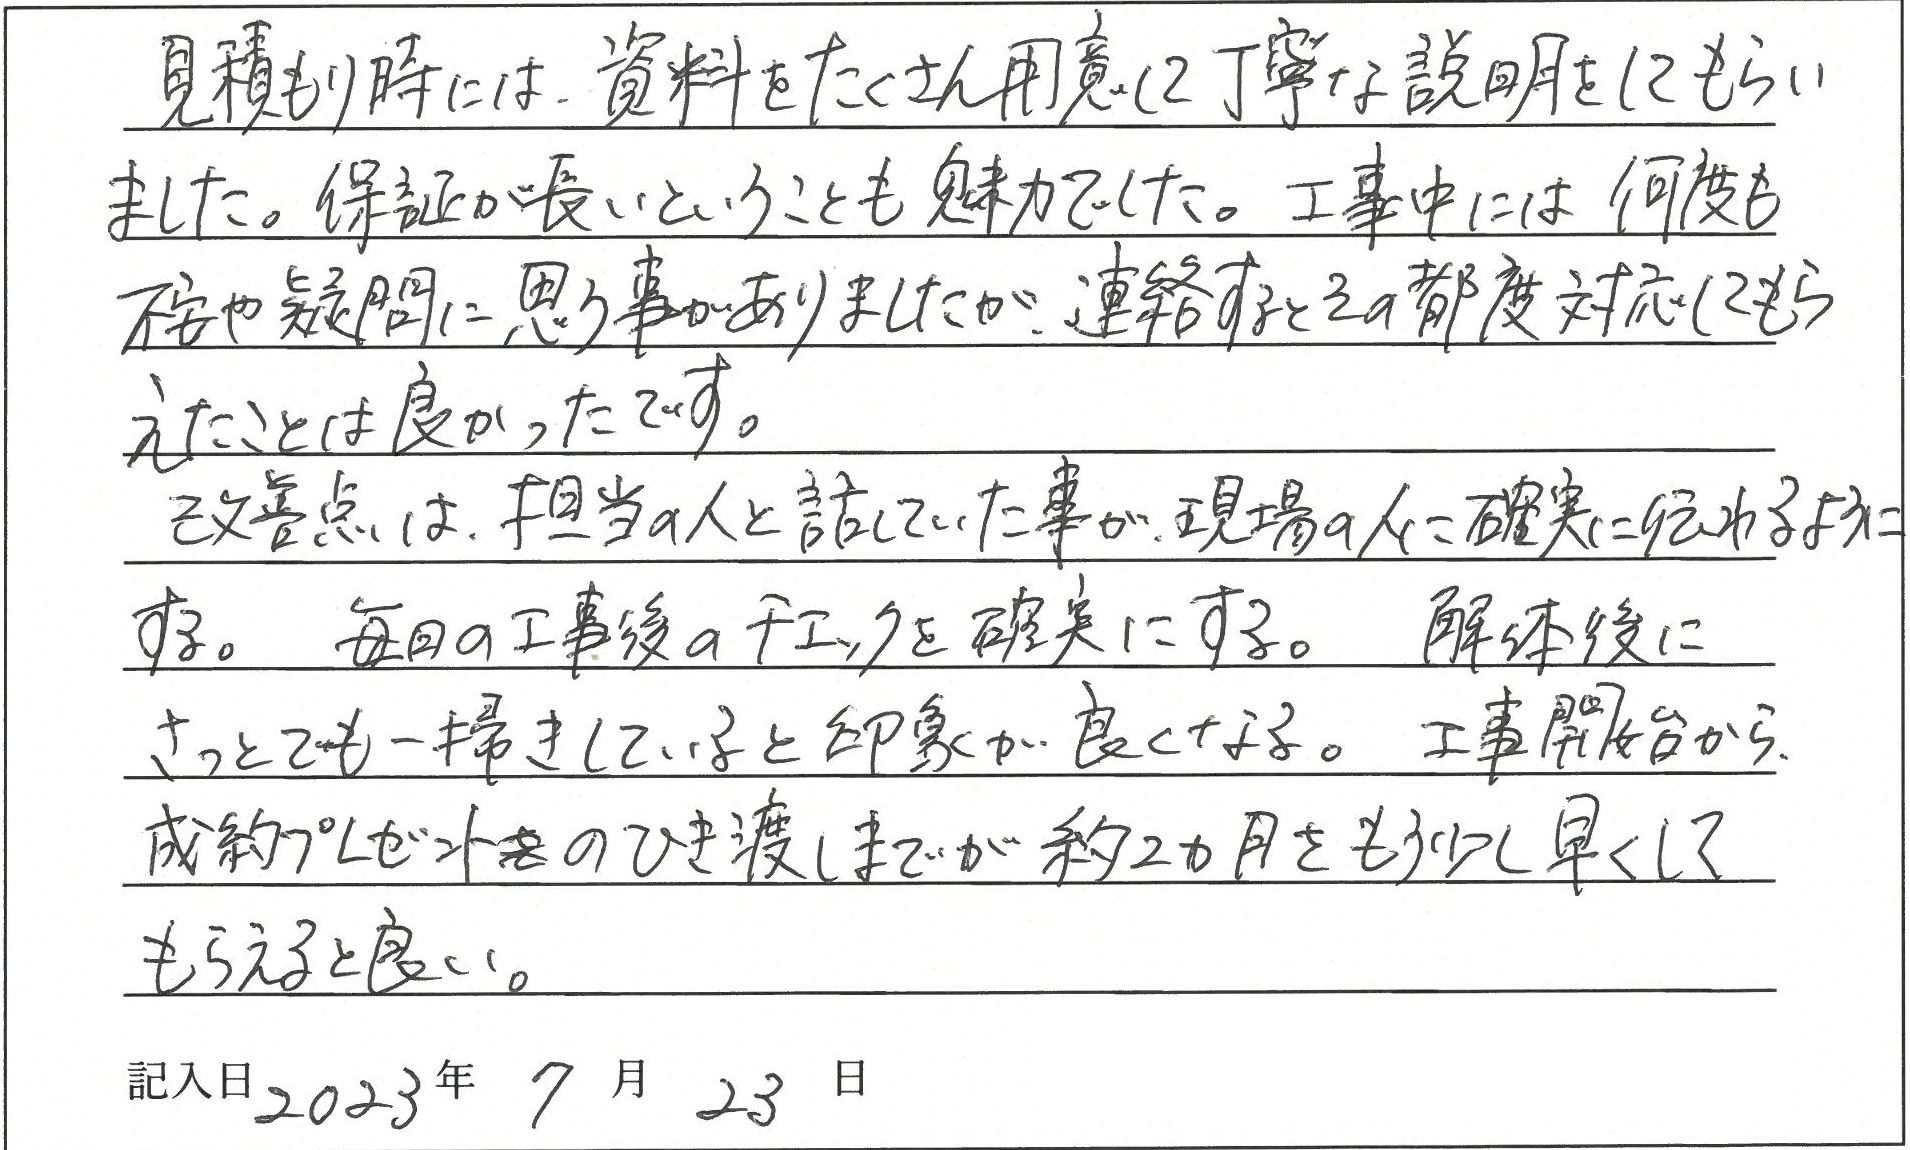 見積もり時には、資料をたくさん用意して丁寧な説明をしてもらい
ました。保証が長いということも魅力でした。工事中には何度も
不安や疑問に思う事がありましたが、連絡するとその都度対応してもら
えたことは良かったです。
改善点は、担当の人と話していた事が、現場の人に確実に伝わるように
する。 毎日の工事後のチェックを確実にする。 解体後に
さっとでも一掃きしていると印象が良くなる。 工事開始から、
成約プレゼントのひき渡しまでが約2カ月をもう少し早くして
もらえると良い。
記入日2023年 7月 23日